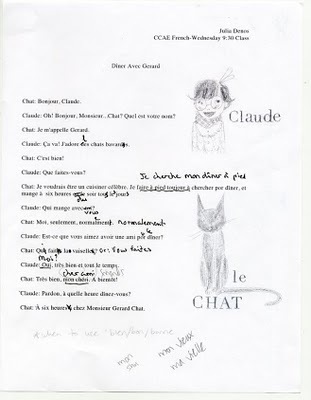 Julia Denos
CCAE French-Wednesday 9:30 Class
Dîner Avec Gerard
Chat: Bonjour, Claude.
Claude: Oh! Bonjour, Monsieur...Chat? Quel est votre nom?
Chat: Je m'appelle Gerard.
Claude: Ça va! J'adore des chats bavards.
Chat: C'est bien!
Claude: Que faites-vous?
Je cherche mon dîner à pied
Chat: Je voudrais être un cuisiner célèbre. Je faire à pied toujour à chercher por diner, et
mange à six heures soir tous
Claude: Qui mange avec
vous
Chat: Moi, seulement, normalement. normalement
Claude: Est-ce que vous aimez avoir une ami por dîner?
le
Chat: Qui vaiselle? or: Vous faites
Moi?
Claude: Oui, très bien et tout le temps.
cher ami
Chat: Très bien, mon chéri. A bientôt!
Claude: Pardon, à quelle heure dînez-vous?
Chat: À six heures chez Monsieur Gerard Chat.
Claude
le
CHAT
when to use bien/bon/bonne
mon
mon vieux
ma vielle